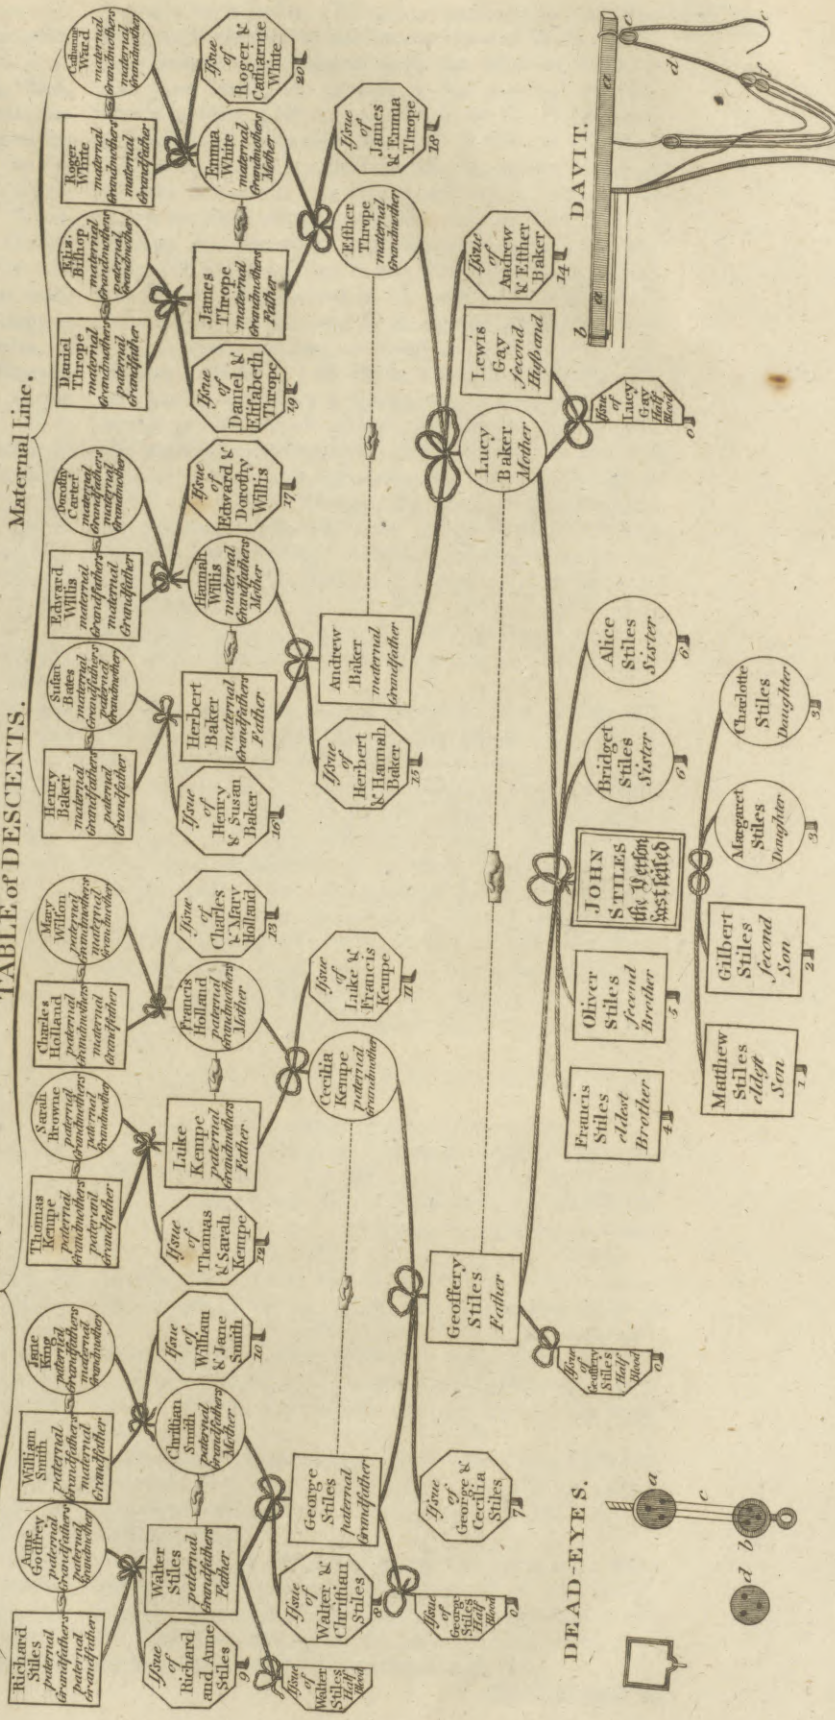 TABLE of DESCENTS.
Maternal Line.
Richard
Stiles
paternal
Grandfathers
paternal
Grandfather
Anne
Godfrey
paternal
Grandfathers
paternal
Grandmother
William
Smith
paternal
Grandfathers
maternal
Grandfather
Jane
King
paternal
Grandfathers
maternal
Grandmother
Thomas
Kempe
paternal
Grandmothers
pateranl
Grandfather
Sarah
Browne
paternal
Grandmothers
paternal
Grandmother
Charles
Holland
paternal
Grandmothers
maternal
Grandfather
Mary
Wilſon
paternal
Grandmothers
maternal
Grandmother
Henry
Baker
maternal
Grandfathers
paternal
Grandfather
Suſan
Bates
maternal
Grandfathers
paternal
Grandmother
Edward
Willis
maternal
Grandfathers
maternal
Grandfather
Dorothy
Carter
maternal
Grandfathers
maternal
Grandmother
Daniel
Thrope
maternal
Grandmothers
paternal
Grandfather
Eliz.
Biſhop
maternal
Grandmothers
paternal
Grandmother
Roger
White
maternal
Grandmothers
maternal
Grandfather
Catharine
Ward
maternal
Grandmothers
maternal
Grandmother
Iſsue
of
Richard
and Anne
Stiles
9
Walter
Stiles
paternal
Grandfathers
Father
Chriſtian
Smith
paternal
Grandfathers
Mother
Iſsue
of
William
& Jane
Smith
10
Iſsue
of
Thomas
& Sarah
Kempe
12
Luke
Kempe
paternal
Grandmothers
Father
Francis
Holland
paternal
Grandmothers
Mother
Iſsue
of
Charles
& Mary
Holland
13
Iſsue
of
Henry
& Susan
Baker
16
Herbert
Baker
maternal
Grandfathers
Father
Hannah
Willis
maternal
Grandfathers
Mother
Iſsue
of
Edward &
Dorothy
Willis
17
Iſsue
of
Daniel &
Eliſabeth
Thrope
19
James
Thrope
maternal
Grandmothers
Father
Emma
White
maternal
Grandmothers
Mother
Iſsue
of
Roger &
Catharine
White
20
Iſsue
of
Walter
Stiles
Half
Blood
Iſsue
of
Walter &
Chriſtian
Stiles
8
George
Stiles
paternal
Grandfather
Cecilia
Kempe
paternal
Grandmother
Iſsue
of
Luke &
Francis
Kempe
11
Iſsue
of
Herbert
& Hannah
Baker
15
Andrew
Baker
maternal
Grandfather
Eſther
Thrope
maternal
Grandmother
Iſsue
of
James
& Emma
Thrope
18
Iſsue
of
George
Stiles
Half
Blood
0
Iſsue
of
George &
Cecilia
Stiles
7
Geoffery
Stiles
Father
Lucy
Baker
Mother
Lewis
Gay
ſecond
Huſband
Iſsue
of
Andrew
& Eſther
Baker
14
Iſsue
of
Geoffery
Stiles
Half
Blood
0
Iſsue
of
Lucy
Gay
Half
Blood
0
Francis
Stiles
eldest
Brother
4
Oliver
Stiles
ſecond
Brother
5
JOHN
STILES
the Perſon
laſt ſeiſed
Bridget
Stiles
Sister
6
Alice
Stiles
Sister
6
Matthew
Stiles
eldeſt
Son
1
Gilbert
Stiles
ſecond
Son
2
Margaret
Stiles
Daughter
3
Charlotte
Stiles
Daughter
3
DEAD-EYES.
a
c
b
d
DAVIT.
b
a
a
c
d
f
e